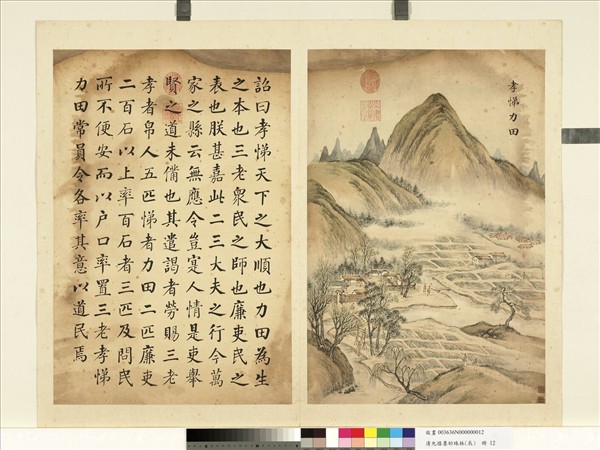 孝悌力田
詔曰孝悌天下之大順也力田為生
之本也三老衆民之師也廉吏民之
表也朕甚嘉此二三大夫之行今萬
家之縣云無應令豈寔人情是吏舉
賢之道未備也其遣謁者勞賜三老
孝者帛人五匹悌者力田二匹廉吏
二百石以上率百石者三匹及問民
所不便安而以户口率置三老孝悌
力田常員令各率其意以道民焉
故畫 003636N000000012
冊 12